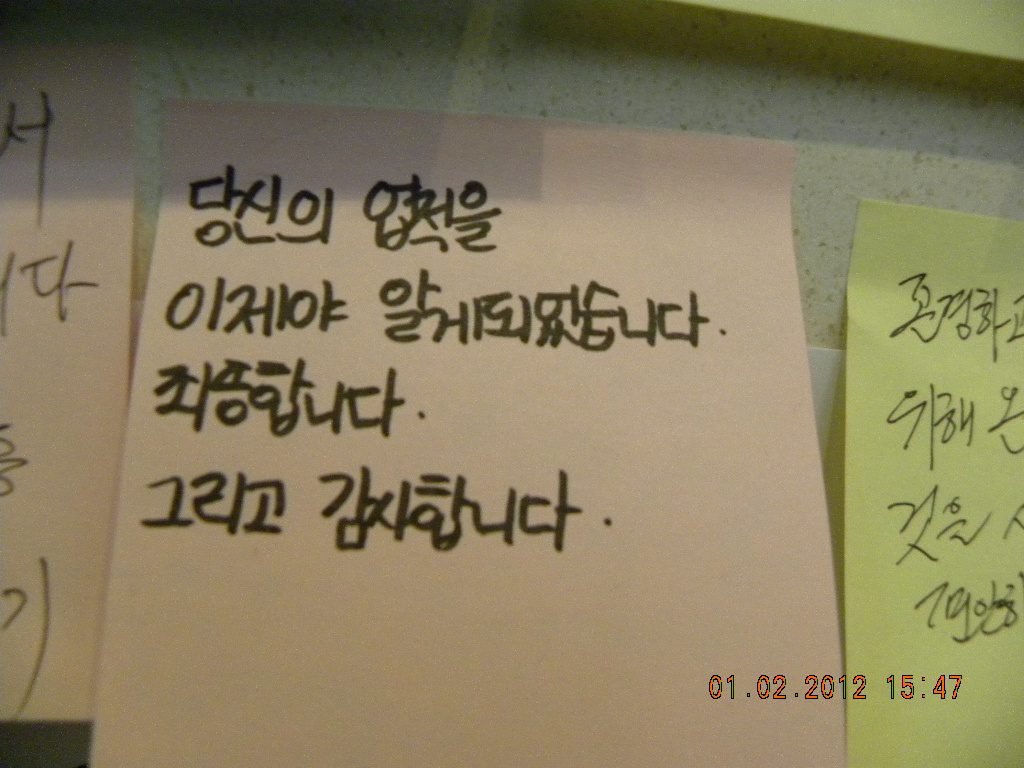 당신의 업적을
이제야 알게되었습니다.
죄송합니다.
그리고 감사합니다.
서
니다
을
기
존경하고
위해 온
것을
편안히
01.02.2012 15:47